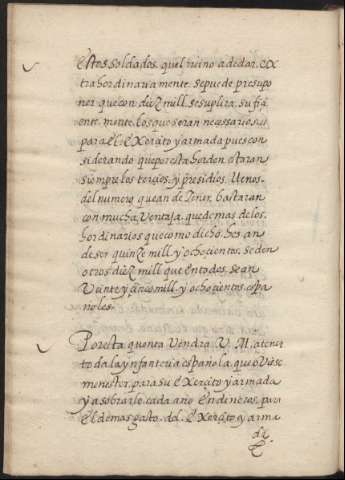 Estos soldados. quel reino a de dar. ex
trahordinariamente. se puede presupo
ner que con diez mill. se suplira sufiçi
ente. mente. los que seran necessarios
para El Exerçito y armada pues con
siderando que por esta horden. estaran
siempre los terçios. y presidios llenos.
del numero que an de tener, bastaran
con mucha. Ventaja. quedemas de los.
hordinarios que como dicho. hes an
de ser quinze mill. y ochoçientos. se den
otros diez mill que en todos. sean
Veinte y çinco mill. y ochoçientos. espa
ñoles.
Por esta quenta Vendra V. M. a tener
toda la ynfanteria española. que oviese
menester. para su Exerçito y armada
y a sobrarle cada año En dineros. para
El demas gasto. del. Exerçito y arma
da